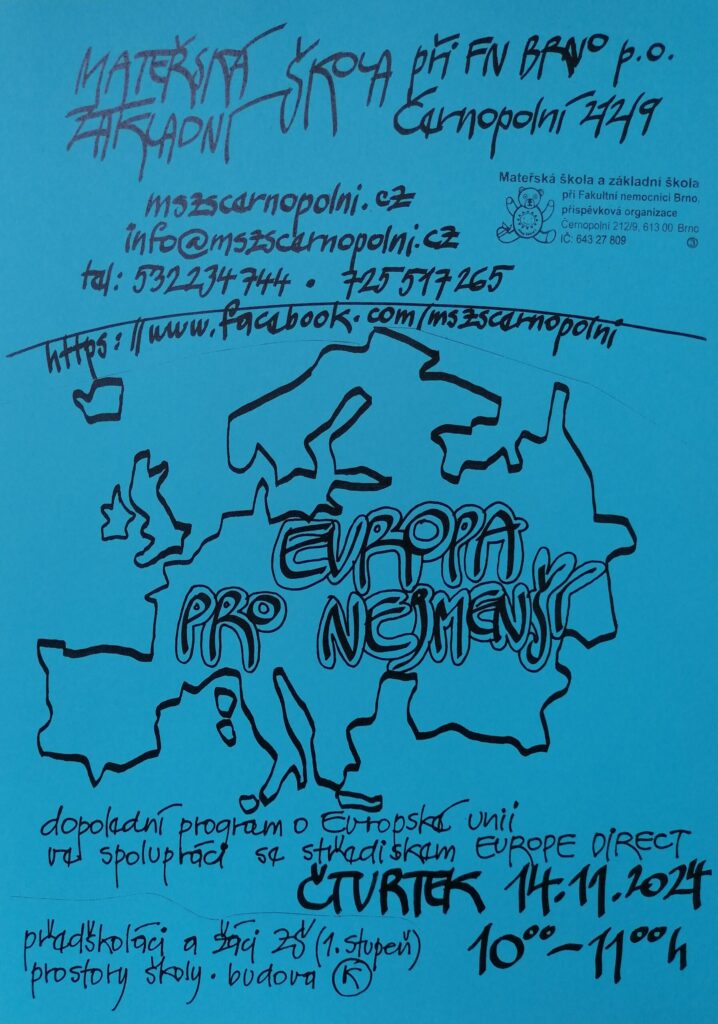 MATEŘSKÁ ŠKOLA při FN BRNO p.o.
ZÁKLADNÍ Černopolní 212/9
mszscernopolni.cz
info@mszscernopolni.cz
tel: 532234744 • 725517265
https://www.facebook.com/mszscernopolni
Mateřská škola a základní škola
při Fakultní nemocnici Brno,
příspěvková organizace
Černopolní 212/9, 613 00 Brno
IČ: 643 27 809 3
EVROPA
PRO NEJMENŠÍ
dopolední program o Evropské unii
ve spolupráci se střediskem EUROPE DIRECT
ČTVRTEK 14.11.2024
předškoláci a žáci ZŠ (1. stupeň)
10⁰⁰–11⁰⁰h
prostory školy • budova K